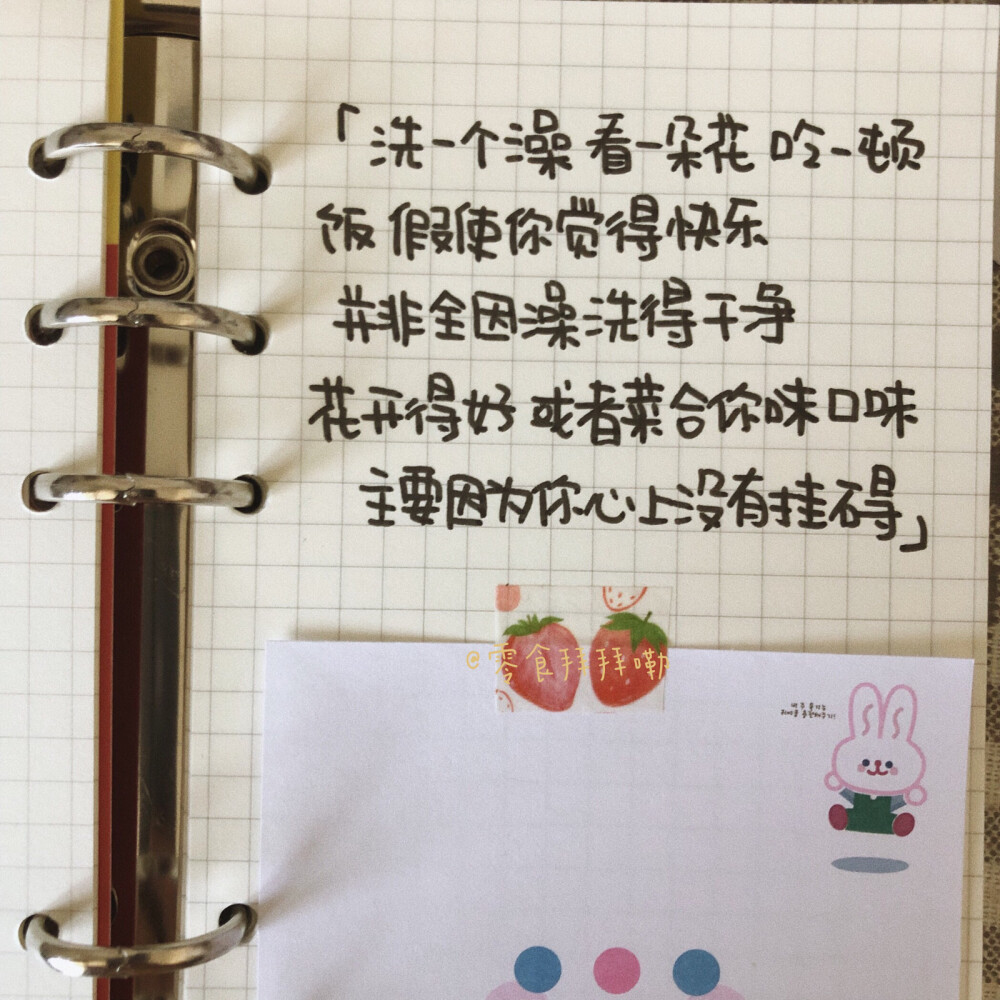 「洗一个澡 看一朵花 吃一顿
饭 假使你觉得快乐
并非全因澡洗得干净
花开得好 或者菜合你味口味
主要因为你心上没有挂碍」
@零食拜拜嘞